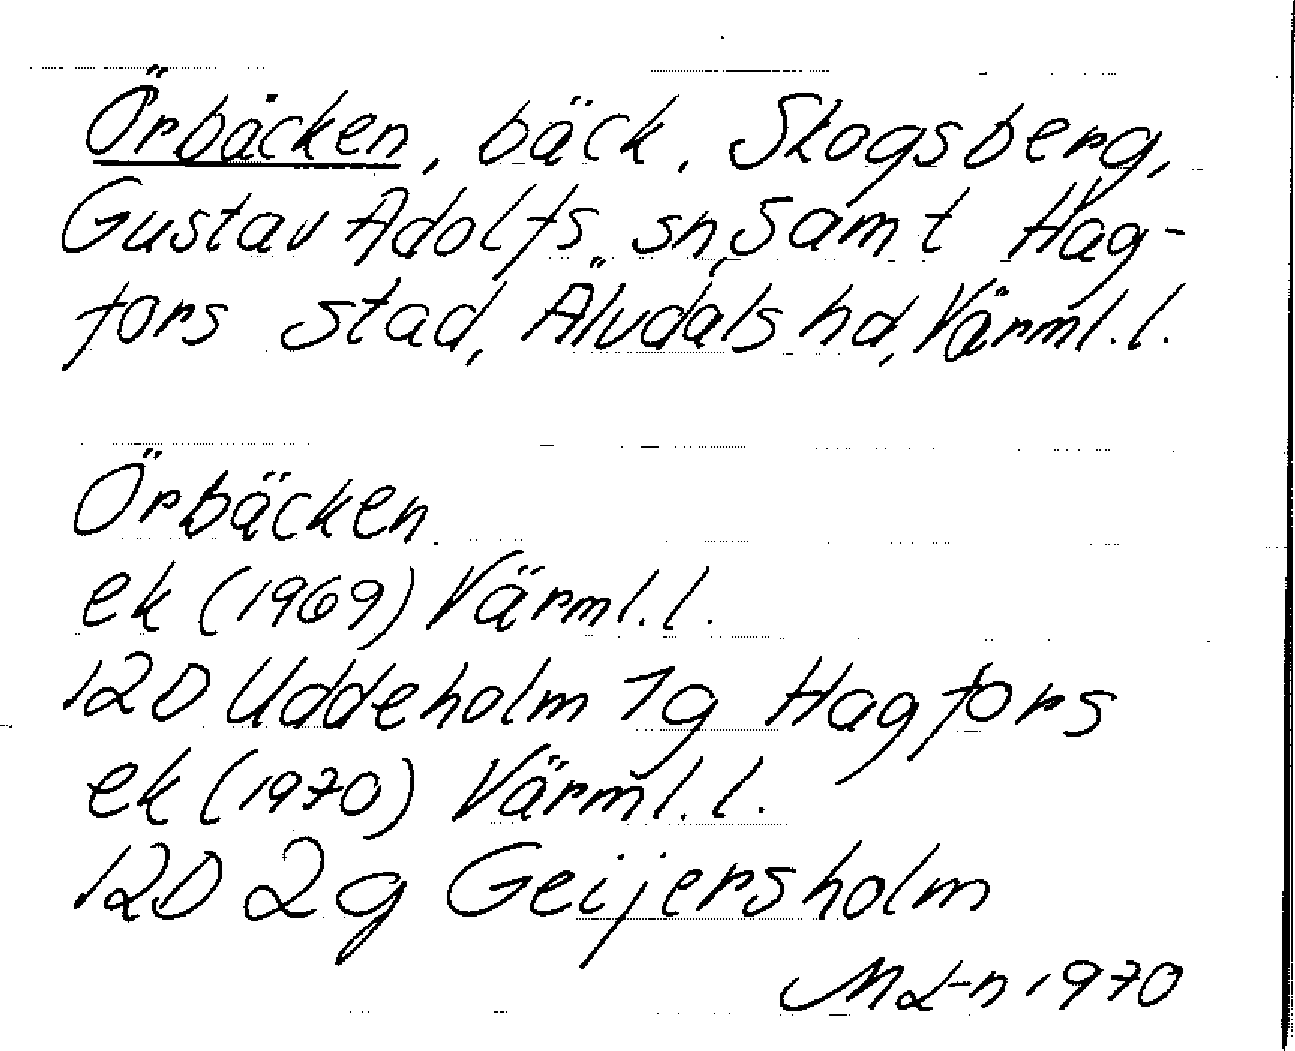 Örbäcken, bäck, Skogsberg,
Gustav Adolfs sn, samt Hag-
fors stad, Älvdals hd, Värml. l.
Örbäcken
ek (1969) Värml. l.
12D Uddeholm 1g Hagfors
ek (1970) Värml. l.
12D 2g Geijersholm
1970